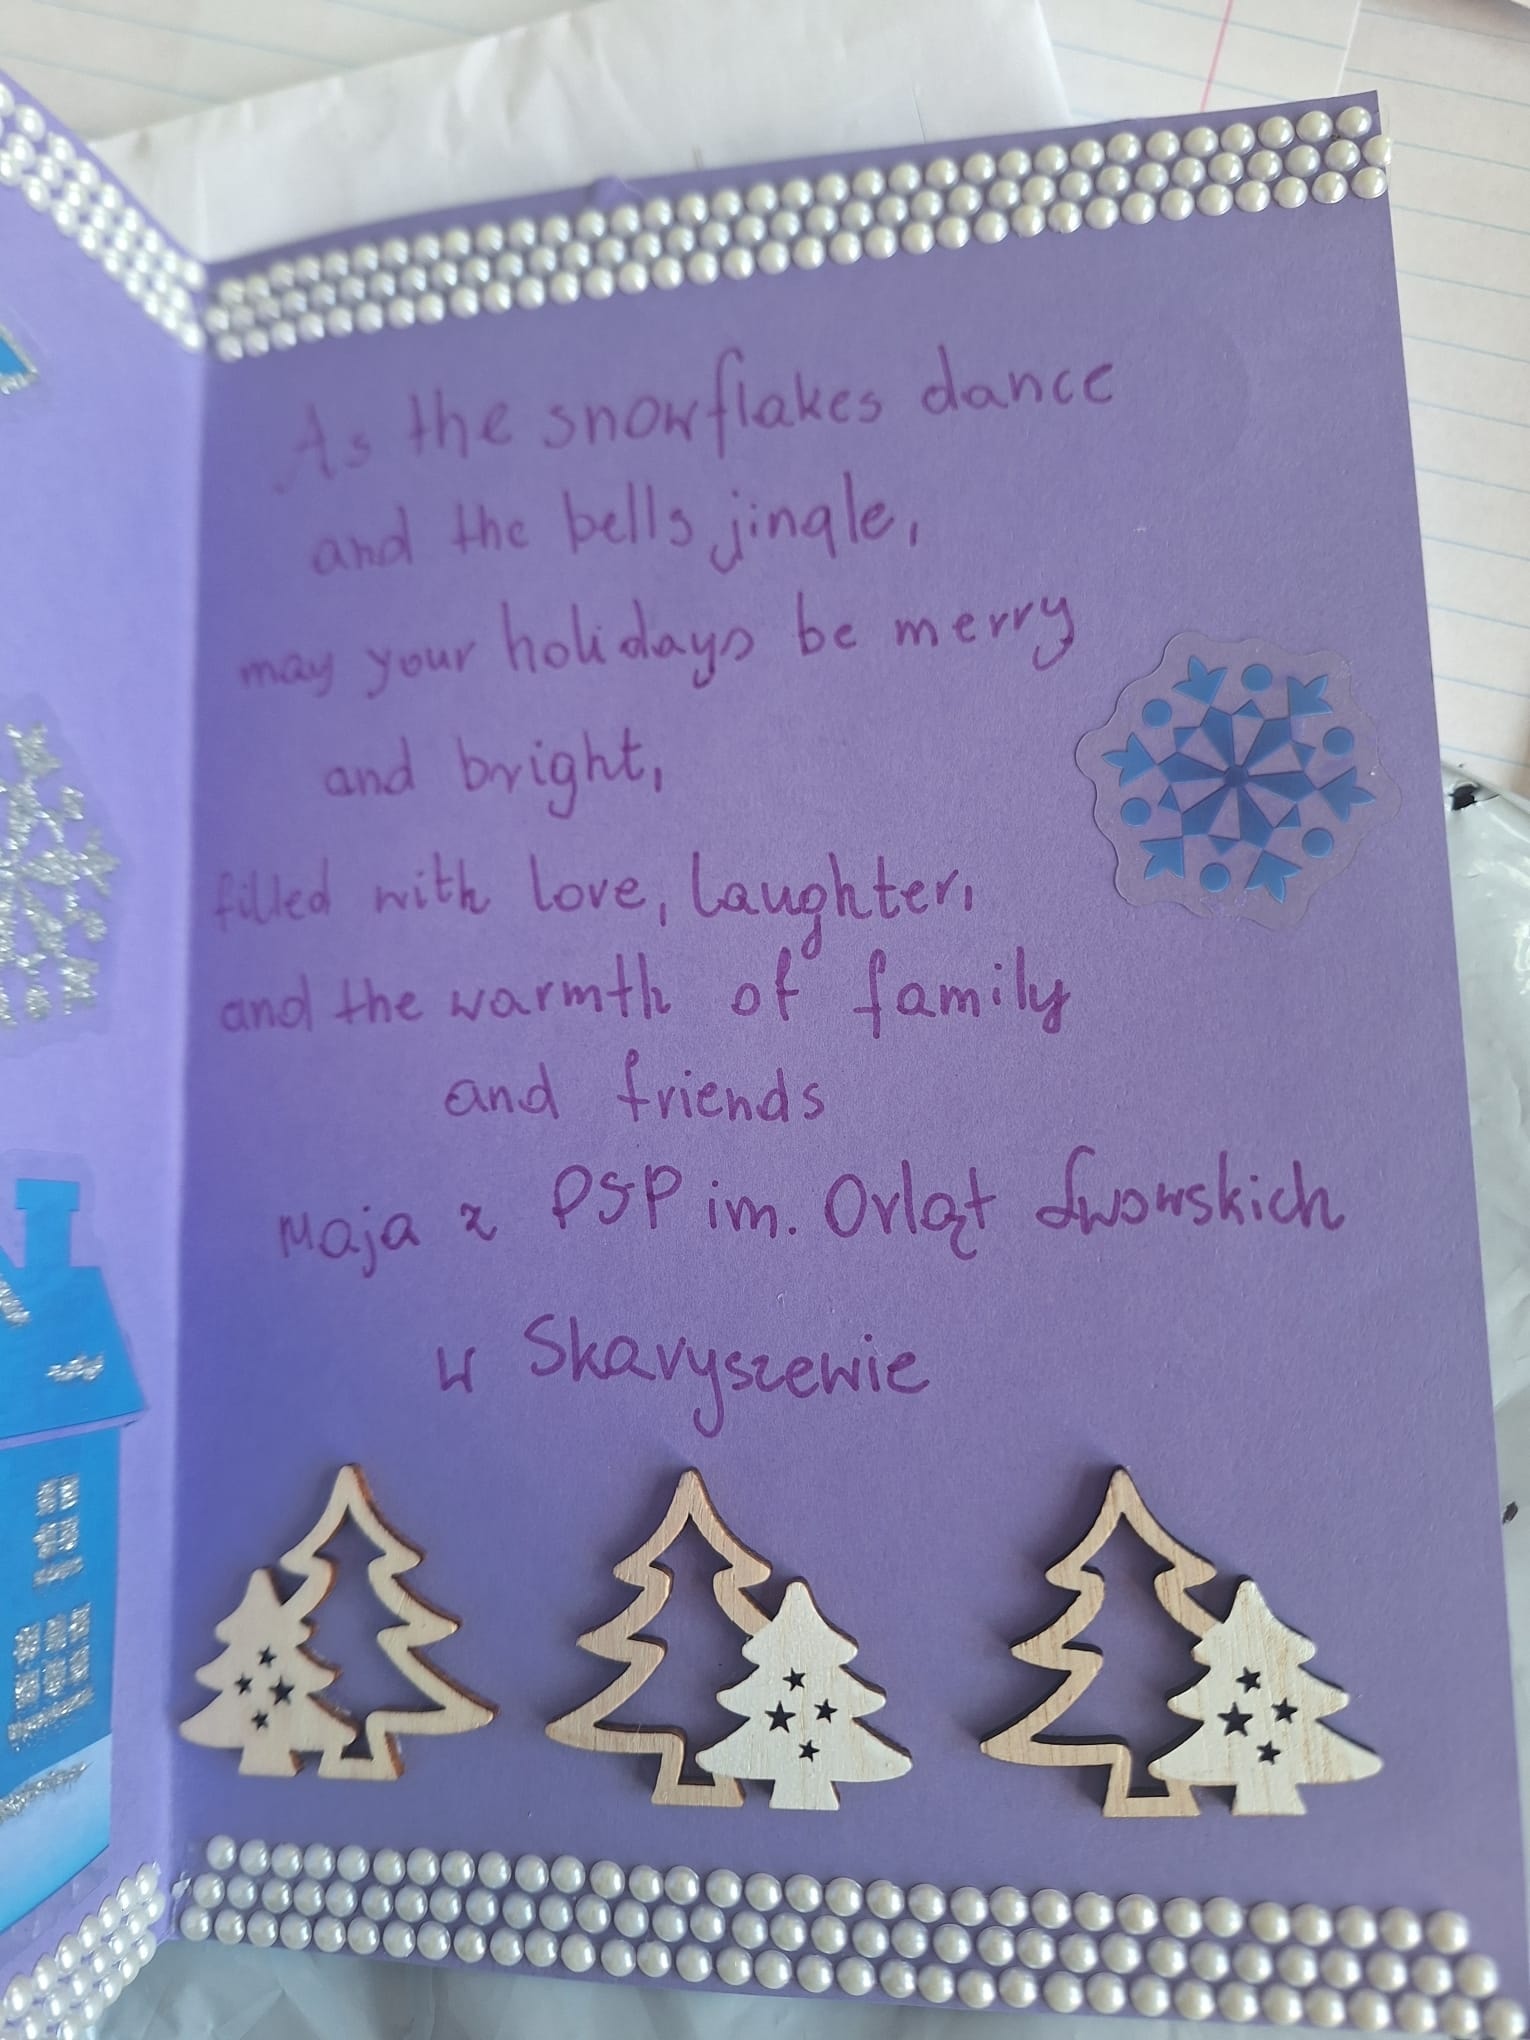 As the snowflakes dance
and the bells jingle,
may your holidays be merry
and bright,
filled with love, laughter,
and the warmth of family
and friends
Maja z PSP im. Orląt Lwowskich
w Skaryszewie